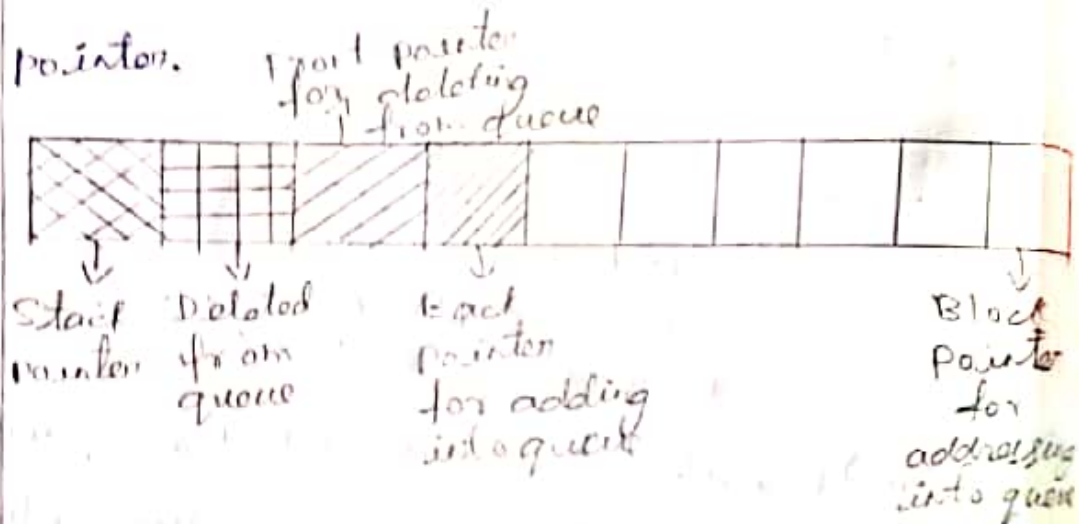 pointer.
Front pointer
for deleting
from queue
Start
pointer
Deleted
from
queue
pointer
for adding
into queue
Block
Pointer
for
addressing
into queue